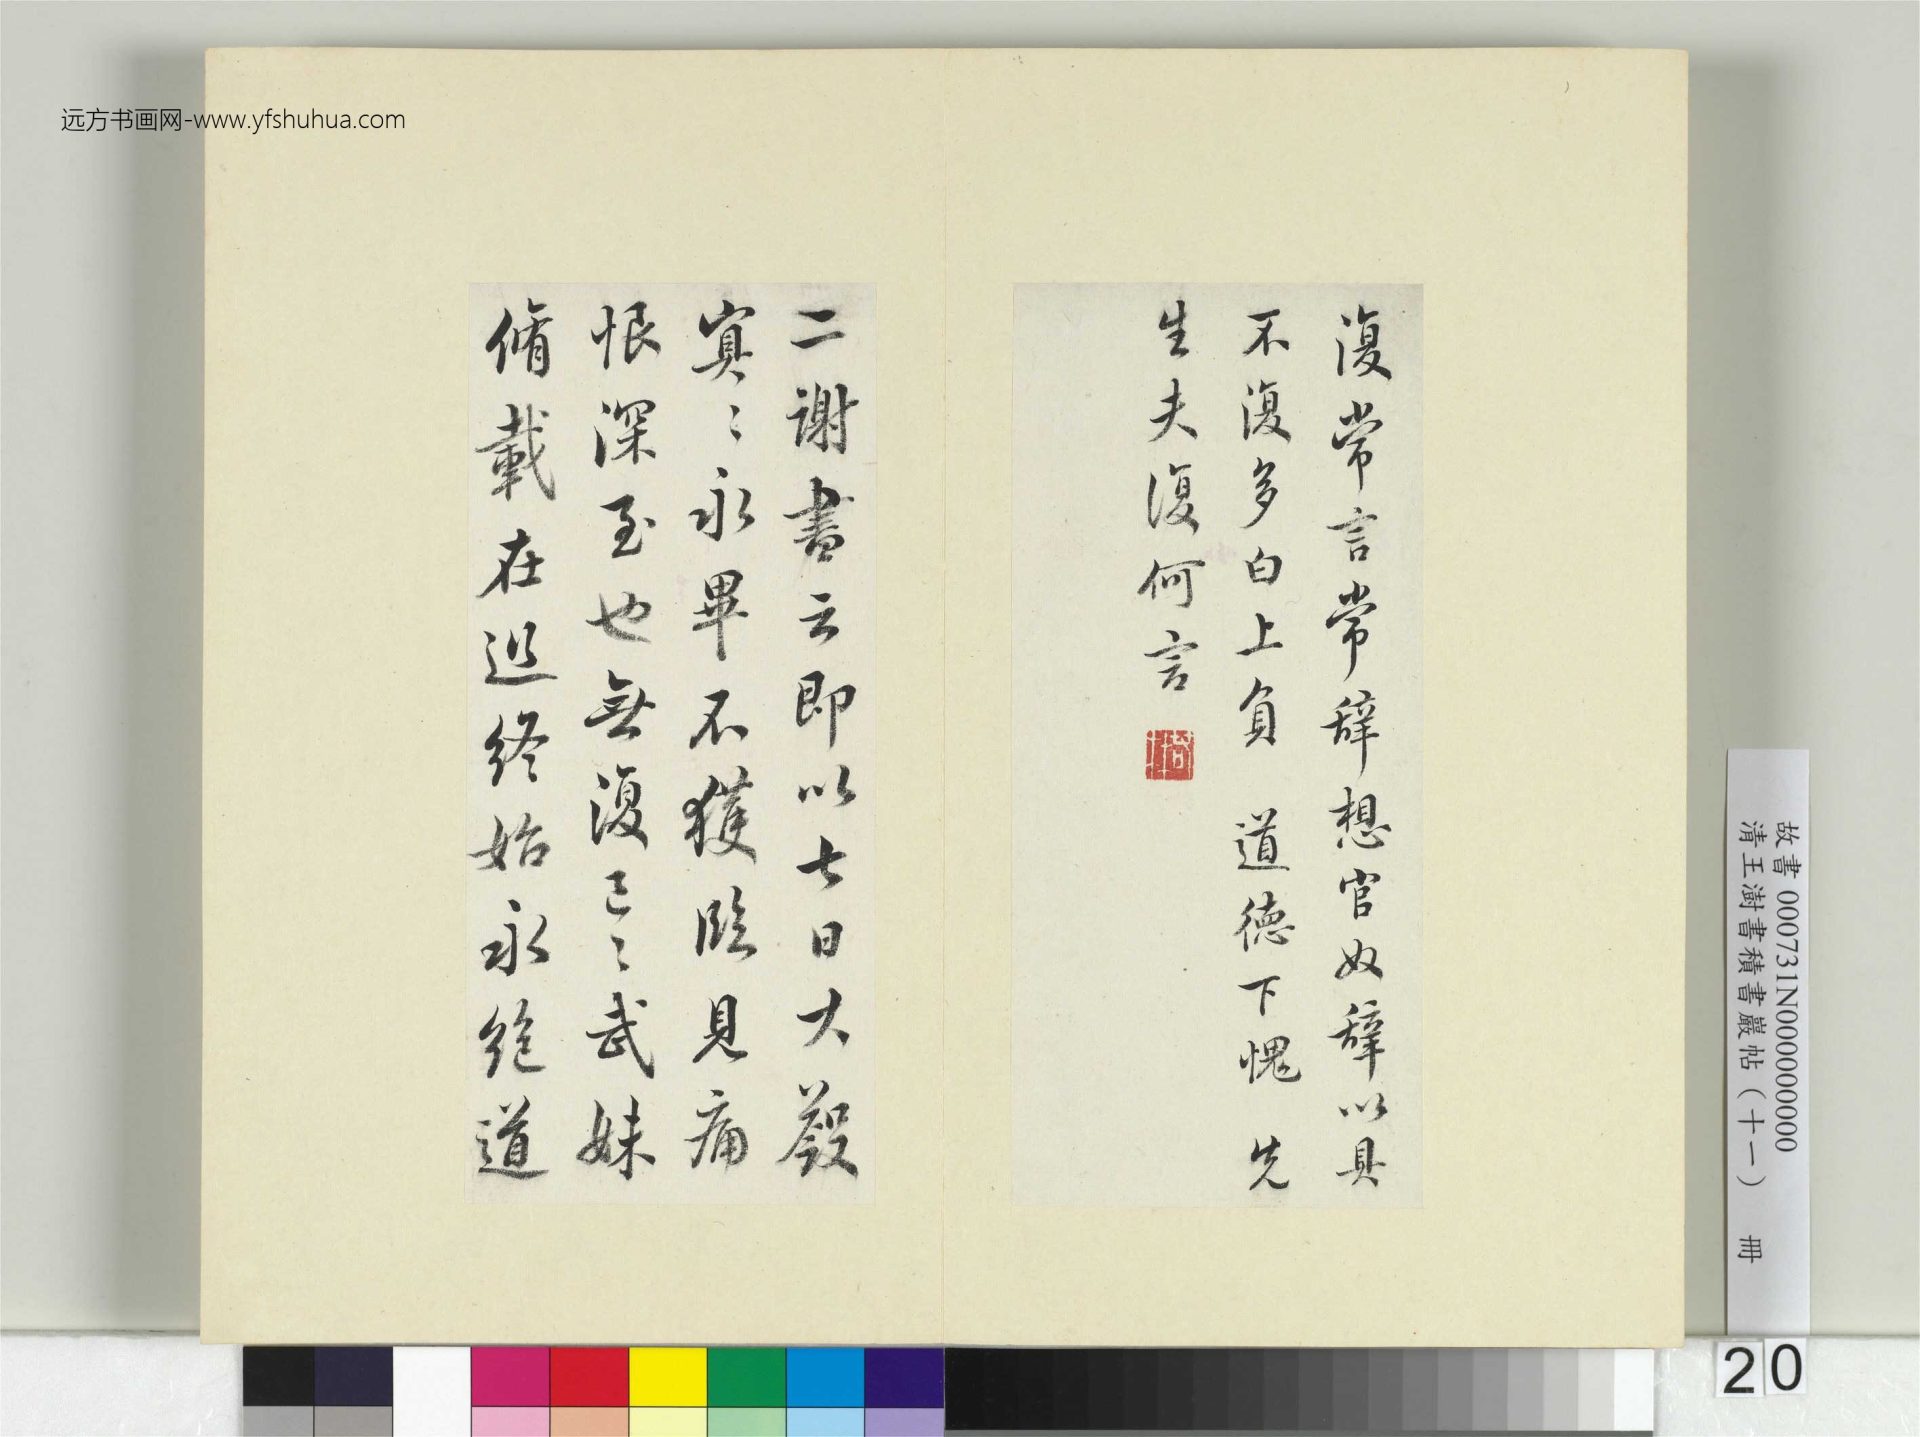 远方书画网-www.yfshuhua.com
復常言常辭想官奴辭以具
不復多白上負 道德下愧 先
生夫復何言
二謝書云即以七日大斂
冥〻永畢不獲臨見痛
恨深至也無復已〻武妹
脩載在遐終始永絕道
故書000731N000000000
清王澍書積書巖帖（十一） 冊
20